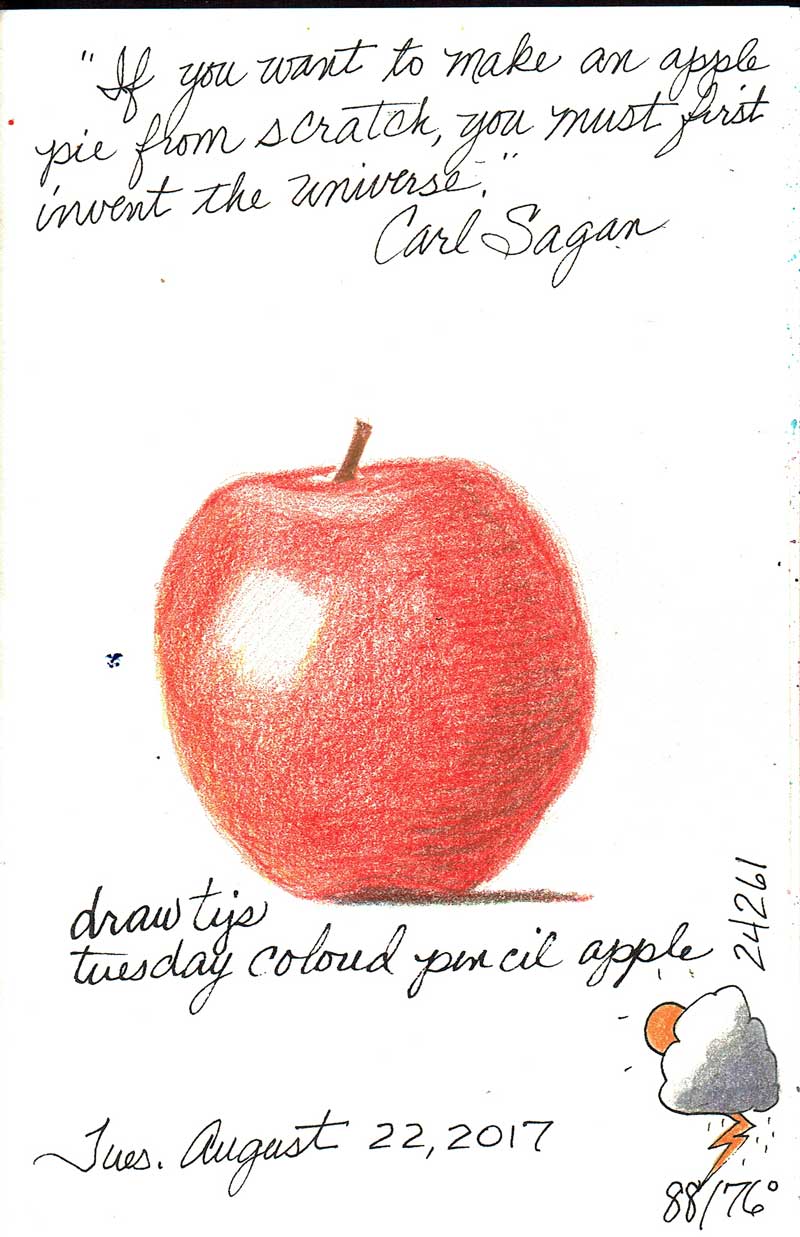 "If you want to make an apple
pie from scratch, you must first
invent the universe."
Carl Sagan
draw tijs
tuesday colored pencil apple
24261
Tues. August 22, 2017
88/76°